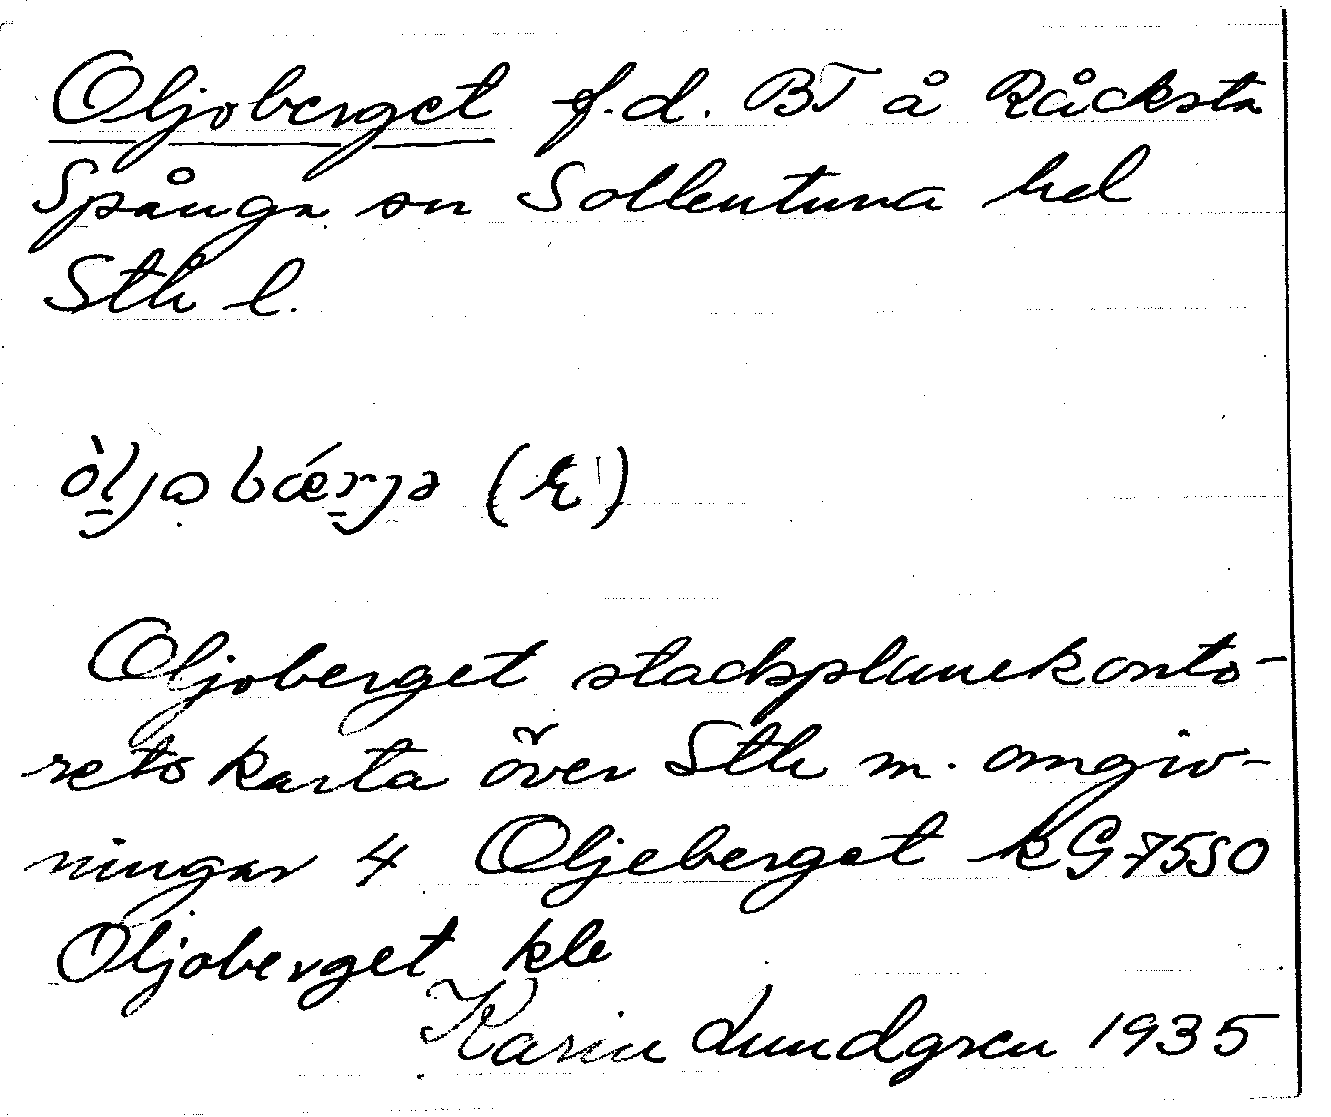 Oljoberget f.d. BT å Råcksta
Spånga sn Sollentuna hd
Sthl l.
òljobǽrjə (E)
Oljoberget stadsplanekonto-
rets karta över Sthlm m. omgiv-
ningar 4 Oljeberget kG 7550
Oljoberget kle
Karin Lundgren 1935